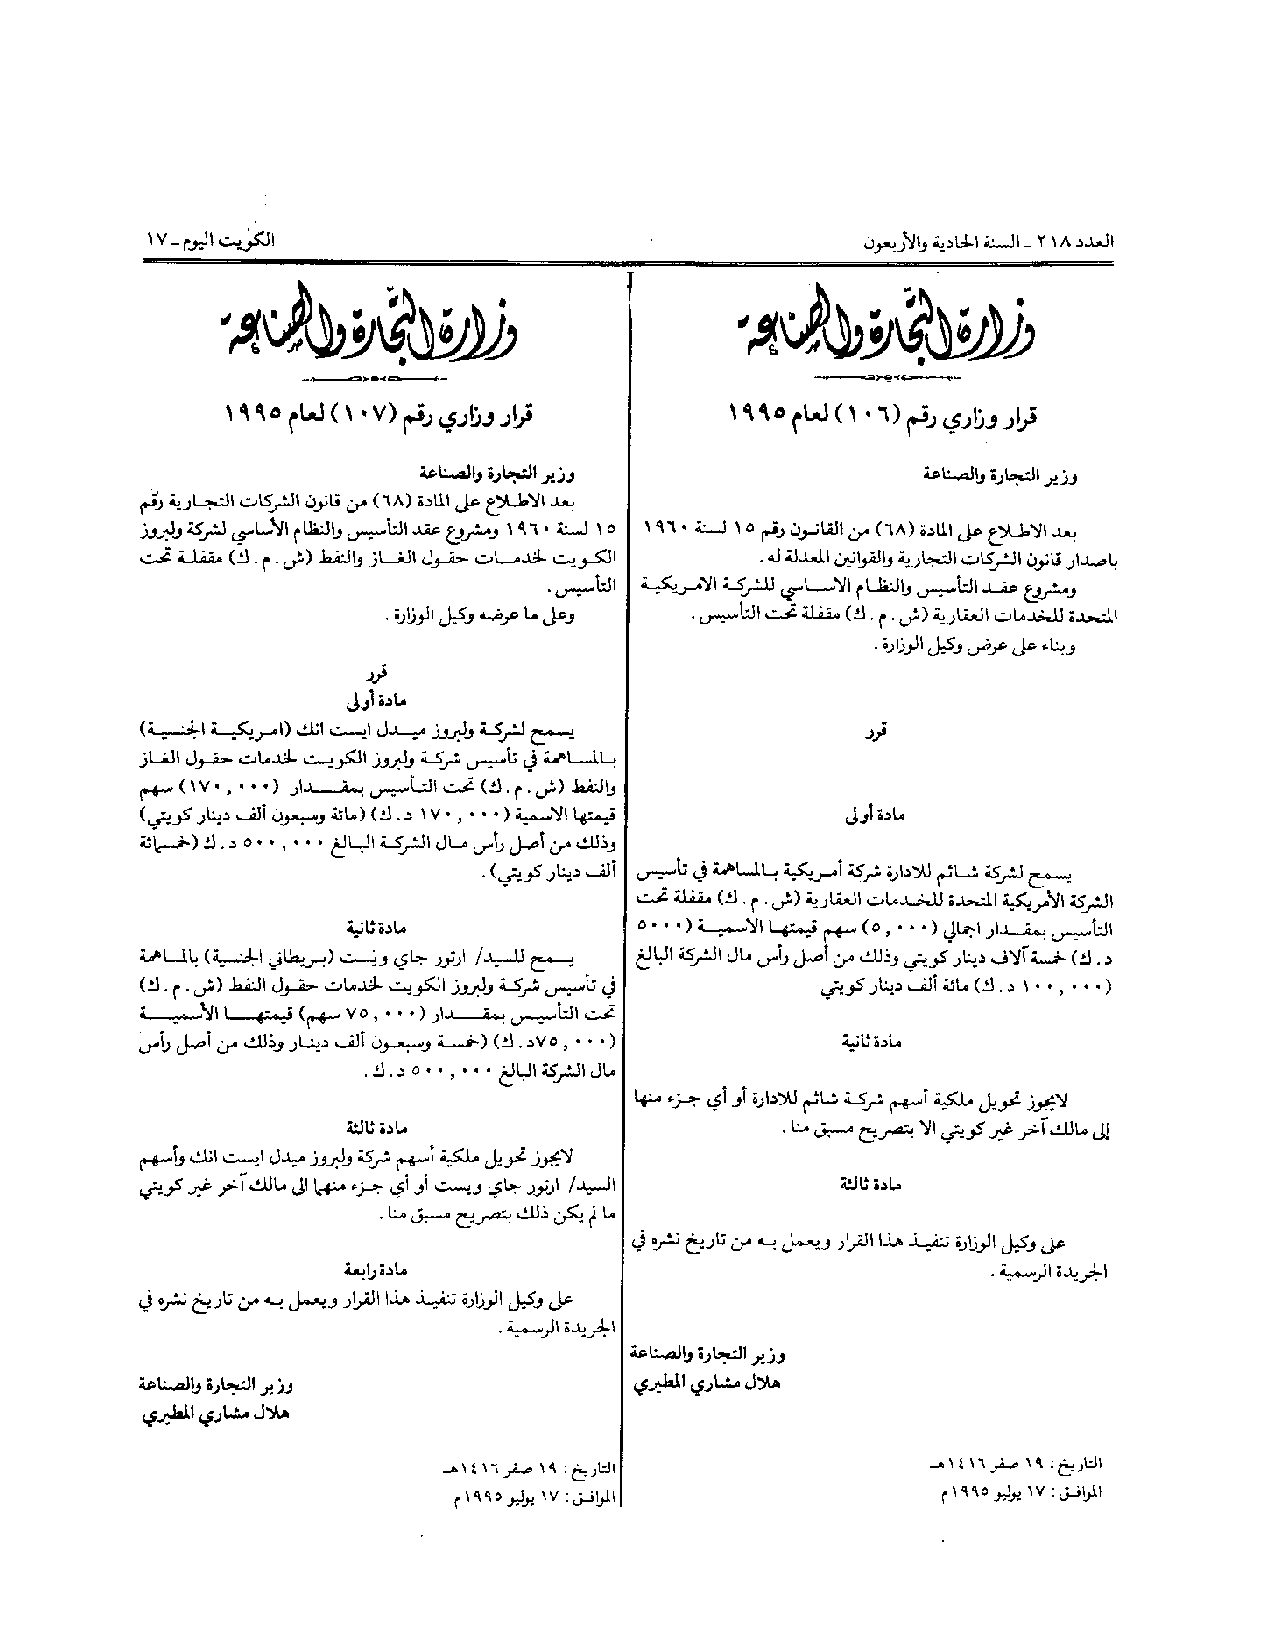 العدد ٢١٨ - السنة الحادية والأربعون
الكويت اليوم - ١٧
وزارة التجارة والصناعة
قرار وزاري رقم (١٠٦) لعام ١٩٩٥
وزير التجارة والصناعة
بعد الاطلاع على المادة (٦٨) من القانون رقم ١٥ لسنة ١٩٦٠
باصدار قانون الشركات التجارية والقوانين المعدلة له .
ومشروع عقد التأسيس والنظام الاساسي للشركة الامريكية
المتحدة للخدمات العقارية (ش . م . ك) مقفلة تحت التأسيس .
وبناء على عرض وكيل الوزارة .
قرر
مادة أولى
يسمح لشركة شائم للادارة شركة أمريكية بالمساهمة في تأسيس
الشركة الأمريكية المتحدة للخدمات العقارية (ش . م . ك) مقفلة تحت
التأسيس بمقدار اجمالي (٥,٠٠٠) سهم قيمتها الاسمية (٥٠٠٠
د . ك) خمسة آلاف دينار كويتي وذلك من أصل رأس مال الشركة البالغ
(١٠٠,٠٠٠ د . ك) مائة ألف دينار كويتي
مادة ثانية
لايجوز تحويل ملكية أسهم شركة شائم للادارة أو أي جزء منها
إلى مالك آخر غير كويتي الا بتصريح مسبق منا .
مادة ثالثة
على وكيل الوزارة تنفيذ هذا القرار ويعمل به من تاريخ نشره في
الجريدة الرسمية .
وزير التجارة والصناعة
هلال مشاري المطيري
التاريخ : ١٩ صفر ١٤١٦هـ
الموافق : ١٧ يوليو ١٩٩٥م
وزارة التجارة والصناعة
قرار وزاري رقم (١٠٧) لعام ١٩٩٥
وزير التجارة والصناعة
بعد الاطلاع على المادة (٦٨) من قانون الشركات التجارية رقم
١٥ لسنة ١٩٦٠ ومشروع عقد التأسيس والنظام الأساسي لشركة ولبروز
الكويت لخدمات حقول الغاز والنفط (ش . م . ك) مقفلة تحت
التأسيس .
وعلى ما عرضه وكيل الوزارة .
قرر
مادة أولى
يسمح لشركة ولبروز ميدل ايست انك (امريكية الجنسية)
بالمساهمة في تأسيس شركة ولبروز الكويت لخدمات حقول الغاز
والنفط (ش . م . ك) تحت التأسيس بمقدار (١٧٠,٠٠٠) سهم
قيمتها الاسمية (١٧٠,٠٠٠ د . ك) (مائة وسبعون ألف دينار كويتي)
وذلك من أصل رأس مال الشركة البالغ ٥٠٠,٠٠٠ د . ك (خمسمائة
ألف دينار كويتي) .
مادة ثانية
يسمح للسيد/ ارتور جاي ويست (بريطاني الجنسية) بالمساهمة
في تأسيس شركة ولبروز الكويت لخدمات حقول النفط (ش . م . ك)
تحت التأسيس بمقدار (٧٥,٠٠٠ سهم) قيمتها الأسمية
(٧٥,٠٠٠د . ك) (خمسة وسبعون ألف دينار وذلك من أصل رأس
مال الشركة البالغ ٥٠٠,٠٠٠ د . ك .
مادة ثالثة
لايجوز تحويل ملكية أسهم شركة ولبروز ميدل ايست انك وأسهم
السيد/ ارتور جاي ويست أو أي جزء منها الى مالك آخر غير كويتي
ما لم يكن ذلك بتصريح مسبق منا .
مادة رابعة
على وكيل الوزارة تنفيذ هذا القرار ويعمل به من تاريخ نشره في
الجريدة الرسمية .
وزير التجارة والصناعة
هلال مشاري المطيري
التاريخ : ١٩ صفر ١٤١٦هـ
الموافق : ١٧ يوليو ١٩٩٥م